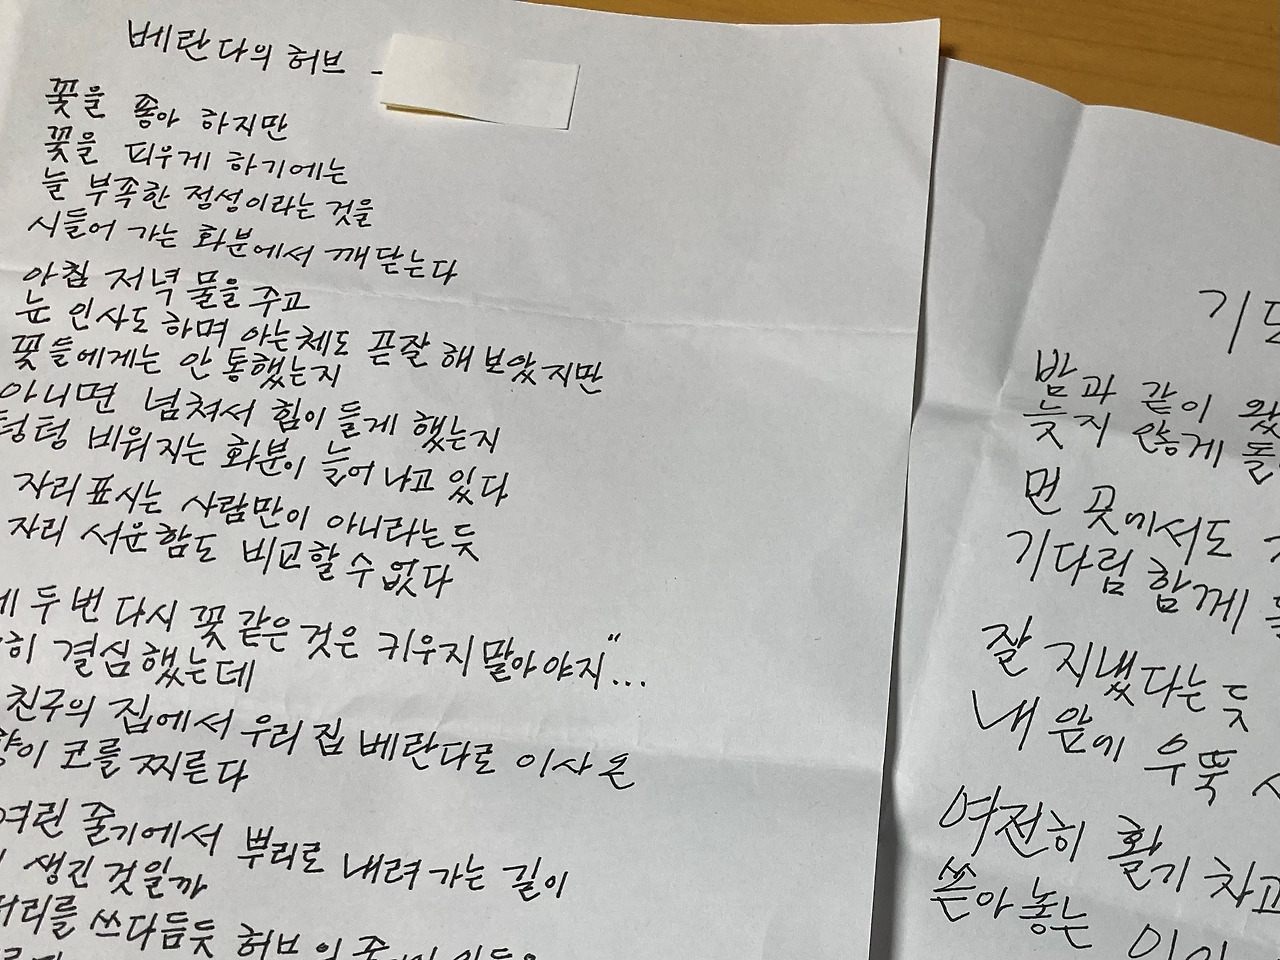 베란다의 허브 -
꽃을 좋아 하지만
꽃을 피우게 하기에는
늘 부족한 정성이라는 것을
시들어 가는 화분에서 깨닫는다
아침 저녁 물을 주고
눈 인사도 하며 아는체도 곧잘 해 보았지만
꽃들에게는 안 통했는지
아니면 넘쳐서 힘이 들게 했는지
텅텅 비워 지는 화분이 늘어 나고 있다
자리표시는 사람만이 아니라는 듯
자리 서운함도 비교할 수 없다
두 번 다시 꽃 같은 것은 키우지 말아야지"...
결심했는데
친구의 집에서 우리 집 베란다로 이사 온
향이 코를 찌른다
여린 줄기에서 뿌리로 내려 가는 길이
생긴 것일까
쓰다듬듯 허브의
기도
밤과 같이 왔
늦지 않게 돌
먼 곳에서도
기다림 함께
잘 지냈다는 듯
내 앞에 우뚝
여전히 활기 차고
쏟아놓는